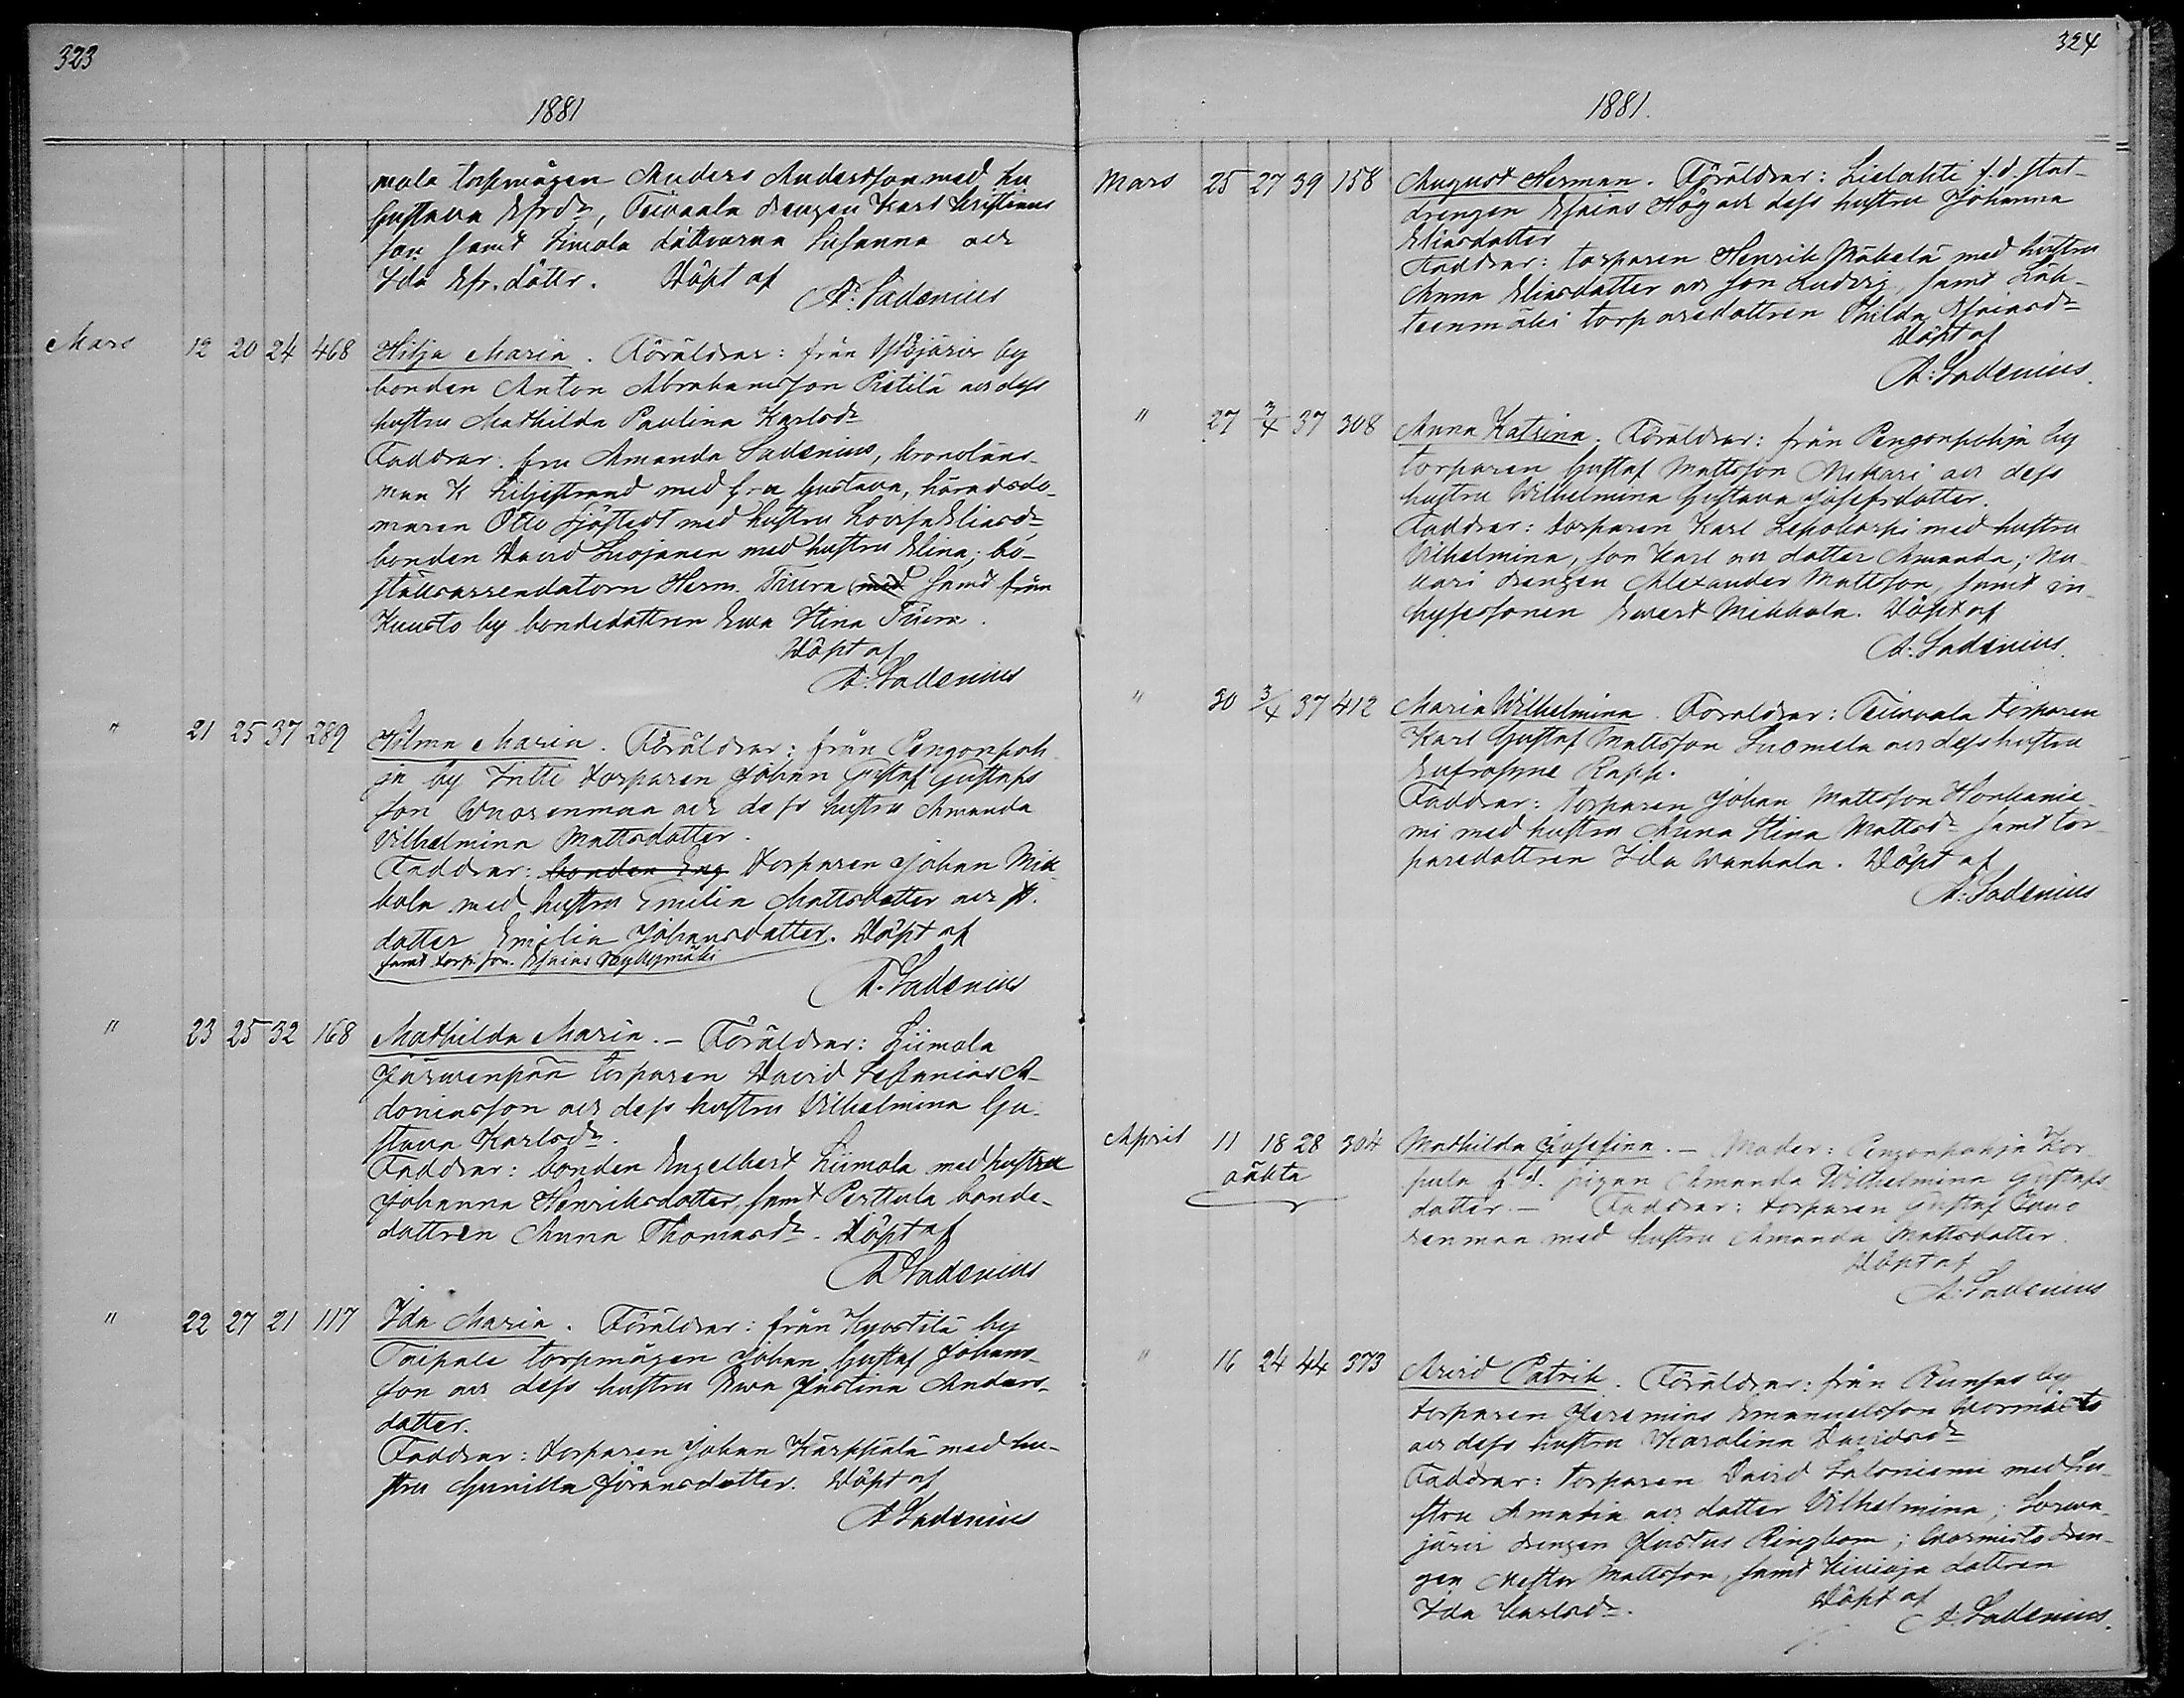 323
1881
mola torpmågen Anders Andersson med hu
Gustava Efrdr, Teivaala drengen Karl Kristians
son samt Limola döttrarna Susanna och
Ida Efr. döttr. Döpt af
A: Ladenius
Mars 12 20 24 468 Hilja Maria. Föräldrar: från Ylöjärvi by
bonden Anton Abrahamsson Pietilä och dess
hustru Mathilda Paulina Karlsdr
Faddrar: fru Amanda Ladenius, kronoläns-
man K Liljestrand med fru Gustava, häradsdo-
maren Otto Sjöstedt med hustru Lovisa Eliasdr
bonden David Luojanen med hustru Elina; bo-
ställsarrendatorn Herm. Tiura med samt från
Kuusto by bondedottren Eva Stina Tiura.
Döpt af
A: Ladenius
" 21 25 37 289 Hilma Maria. Föräldrar: från Pengonpoh
ja by Intti torparen Johan Gustaf Gustafs
son Vuorenmaa och dess hustru Amanda
Vilhelmina Mattsdotter.
Faddrar: bonden Eng torparen Johan Mik
kola med hustru Emilia Mattsdotter och
dotter Emilia Johansdotter. Döpt af
samt torp. son. Efraim Myllymäki
A. Ladenius
" 23 25 32 168 Mathilda Maria. - Föräldrar: Liimola
Järvenpää torparen David Stefanias A-
doniasson och dess hustru Vilhelmina Gu-
stava Karlsdr.
Faddrar: bonden Engelbert Liimola med hustru
Johanna Henriksdotter, samt Perttula bonde-
dottren Anna Thomasdr. Döpt af
A Ladenius
" 22 27 21 117 Ida Maria. Föräldrar: från Kyöstilä by
Taipale torpmågen Johan Gustaf Johans-
son och dess hustru Eva Justina Anders-
dotter.
Faddrar: torparen Johan Kärppälä med hu-
stru Gunilla Göransdotter. Döpt af
A Ladenius
324
1881.
Mars 25 27 39 158 August Herman. Föräldrar: Lielahti f.d. stat-
drengen Efraim Hög och dess hustru Johanna
Eliasdotter
Faddrar: torparen Henrik Mäkelä med hustru
Anna Eliasdotter och son Ludvig, samt Läh-
teenmäki torparedottren Hilda Efraimsdr
Döpt af
A: Ladenius.
" 27 3/4 37 308 Anna Katrina. Föräldrar: från Pengonpohja by
torparen Gustaf Mattsson Nikari och dess
hustru Wilhelmina Gustava Josefsdotter.
Faddrar: torparen Karl Lepokorpi med hustru
Vilhelmina, son Karl och dotter Amanda; Nu
kari drengen Alexander Mattsson, samt in-
hysessonen Evert Mikkola. Döpt af
A: Ladenius.
" 30 3/4 37 412 Maria Wilhelmina. Föräldrar: Teivaala torparen
Karl Gustaf Mattsson Suomela och dess hustru
Eufrosyne Rapp.
Faddrar: torparen Johan Mattsson Honkanie-
mi med hustru Anna Stina Mattsdr samt tor-
paredottren Ida Vanhala. Döpt af
A: Ladenius
April 11 18 28 304 Mathilda Josefina. - Moder: Pengonpohja Kor
oäkta
pula f.d. pigan Amanda Wilhelmina Gustafs-
dotter. - Faddrar: torparen Gustaf Vuo
renmaa med hustru Amanda Mattsdotter.
Döpt af
A: Ladenius
" 16 24 44 373 Arvid Patrik. Föräldrar: från Runsas by
torparen Jeremias Emanuelsson Vormisto
och dess hustru Karolina Davidsdr
Faddrar: torparen David Saloniemi med hu-
stru Amalia och dotter Vilhelmina; Sorva-
järvi drengen Justus Ringbom; Vormisto dren-
gen Nestor Mattsson, samt Kivioja dottren
Ida Karlsdr. Döpt af
A: Ladenius.